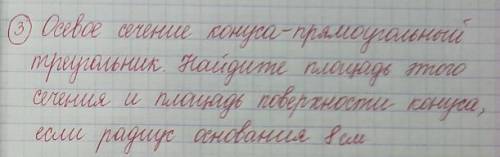 ③ Осевое сечение конуса-прямоугольный
треугольник. Найдите площадь этого
сечения и площадь поверхности конуса,
если радиус основания 8см